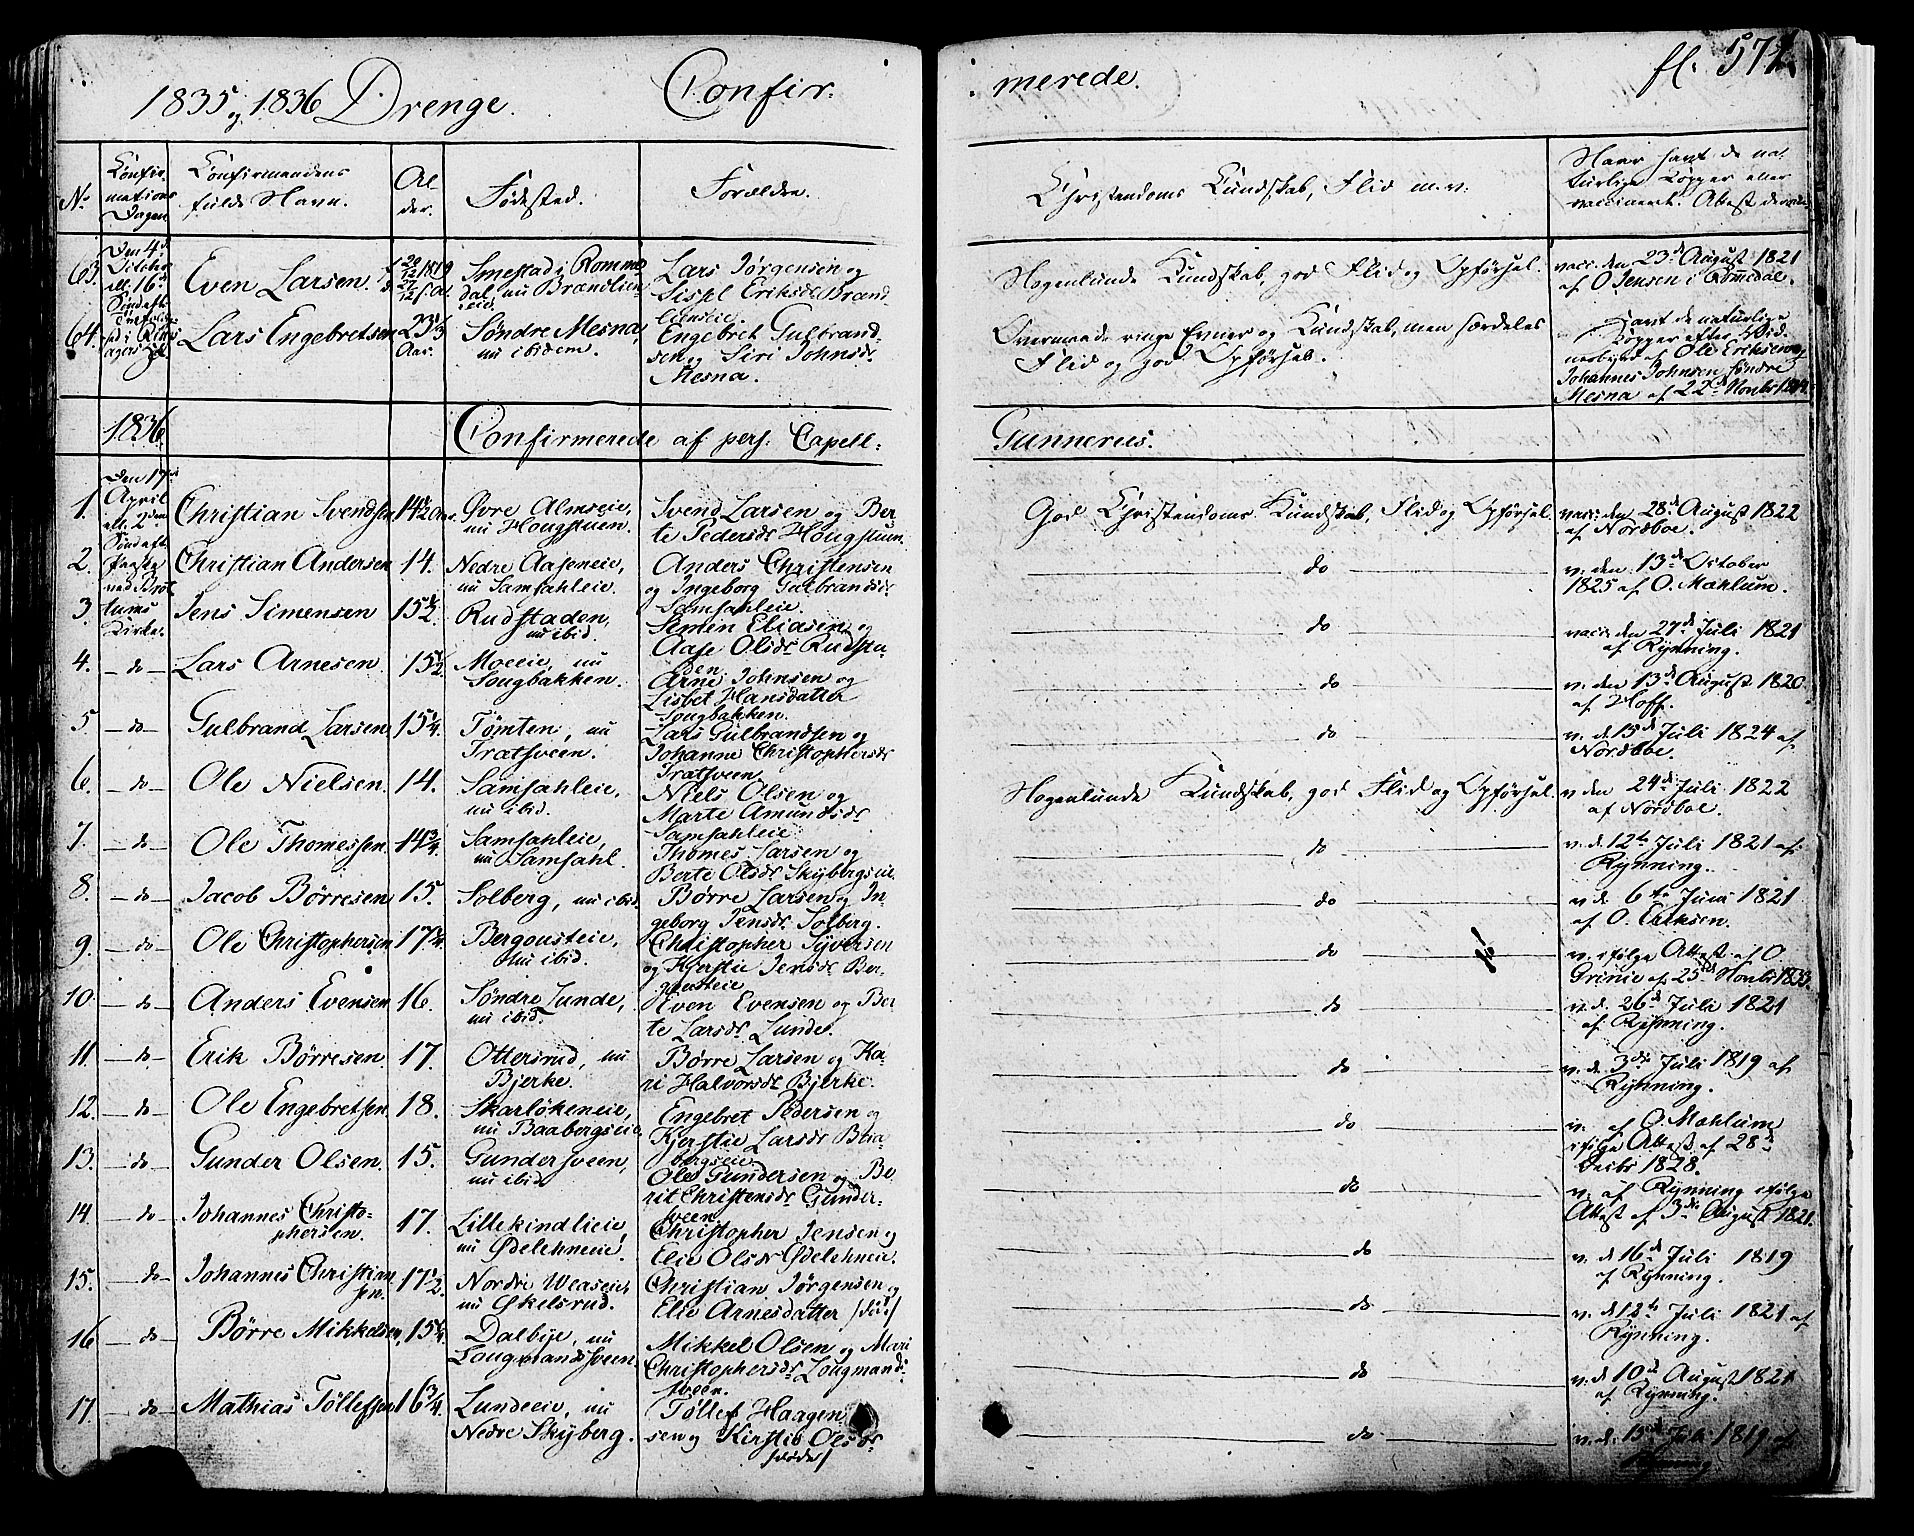 1835 og 1836 Drenge. Confir: merede. fl. 571
No.
Confir
mations
Dagen
Confirmandens
fulde Navn.
Al
der.
Fødested.
Forældre.
Christendoms Kundskab, Flid m.v.
Havt de na
turlige Kopper eller
vaccineret. Attest derom
63. Den 4de
Octobr
ell. 16de
Even Larsen.
Smestad i Romme
dal nu Brændlien
eie
Lars Jørgensen og
Sissel Eriksdr Brænd
lieneie
Nogenlunde Kundskab, god Flid og Opførsel.
vacc: den 23de August 1821
af O Jensen i Rommedal.
64. Lars Engebretsen 23 1/3
Aar.
Søndre Mesna,
nu ibidem.
Engebret Gulbrand
sen og Siri Johnsdr
Mesna.
Overmaade ringe Evner og Kundskab, men særdeles
Flid og god Opførsel.
Havt de naturlige
Kopper efter Vid
nesbyrd af Ole Eriksen og
Johannes Johnsen søndre
Mesna af 22de Novbr
1836. Confirmerede af pers. Capell: Gunnerus.
Den 17de
April
ell. 2den
Sønd. eft.
Paaske
ved Brøt
tums
Kirke.
1. Christian Svendsen 14 1/2 Aar.
Øvre Almseie,
nu Hougstuen.
Svend Larsen og Ber
te Pedersdr Hougstuen.
God Christendoms Kundskab, Flid og Opførsel.
vacc: den 28de August 1822
af Nordboe.
2. Christian Andersen 14.
Nedre Aaseneie,
nu Samsahleie.
Anders Christensen
og Ingeborg Gulbrandsdr
Samsahleie.
do
v: den 13de October
1825 af O. Mahlum.
3. Jens Simensen 15 1/2.
Rudstaden,
nu ibid.
Simen Eliasen og
Aase Olsdr Rudsta
den.
do
vacc: den 27de Juli 1821
af Rynning.
4. -do- Lars Arnesen. 15 1/2
Moeeie, nu
Sougbakken.
Arne Johnsen og
Lisbet Hansdatter
Sougbakken.
do
v: den 13de August 1820.
af Hoff.
5 -do- Gulbrand Larsen 15 1/4
Tømten, nu
Trætsveen.
Lars Gulbrandsen og
Johanne Christophersdr
Trætsveen
do
v: d. 15de Juli 1824 af
Nordboe.
6. do Ole Nielsen. 14.
Samsahleie,
nu ibid.
Niels Olsen og
Marte Amundsdr
Samsahleie
Nogenlunde Kundskab, god Flid og Opførsel.
v: den 24de Juli 1822
af Nordboe.
7. -do- Ole Thomessen. 14 3/4.
Samsahleie,
nu Samsahl.
Thomes Larsen og
Berte Olsdr Skybergseie.
do
v: d. 12te Juli 1821 af
Rynning.
8. -do- Jacob Børresen 15.
Solberg, nu ibid.
Børre Larsen og In
geborg Jensdr Solberg.
do
v: d. 6te Juni 1821
af O. Eriksen.
9. -do- Ole Christophersen 17 1/4.
Bergousteie,
nu ibid.
Christopher Syversen
og Kjerstie Jensdr Ber
gousteie
do
v: ifølge Attest af O.
Grinie af 25de Novbr 1833.
10. -do- Anders Evensen 16.
Søndre Lunde,
nu ibid.
Even Evensen og Ber
te Larsdr Lunde.
do
v: d. 26de Juli 1821
af Rynning.
11. -do- Erik Børresen. 17.
Ottersrud, nu
Bjerke.
Børre Larsen og Ka
ri Halvorsdr Bjerke.
do
v: d. 3die Juli 1819 af
Rynning.
12. -do- Ole Engebretsen 18.
Skarløkeneie,
nu Baabergseie.
Engebret Pedersen og
Kjerstie Larsdr Baa
bergseie.
do
v: af O. Mahlum
ifølge Attest af 28de
Decbr 1828.
13. -do- Gunder Olsen. 15.
Gundersveen,
nu ibid
Ole Gundersen og Be
rit Christensdr Gunder
sveen
do
v: af Rynning ifølge
Attest af 3die August 1821.
14. -do- Johannes Christo-
phersen. 17.
Lillekindlieie,
nu Ødelehneie.
Christopher Jensen og
Elie Olsdr Ødelehneie.
do
v: d. 16de Juli 1819
af Rynning.
15. -do- Johannes Christian
sen. 17 1/2
Nordre Weaseie,
nu Økelsrud.
Christian Jørgensen og
Elie Arnesdatter (død)
do
v: d. 12te Juli 1821 af
Rynning.
16 -do- Børre Mikkelsen, 15 1/4.
Dalbye, nu
Lougmandsveen.
Mikkel Olsen og Mari
Christophersdr Lougmand
sveen.
do
v: d. 10de August 1821
af Rynning.
17. -do- Mathias Tøllefsen 16 3/4.
Lundeeie, nu
Nedre Skyberg.
Tøllef Haagen
sen og Kirstie Olsdr
(døde)
do
v: d. 15de Juli 1819 af
Rynning